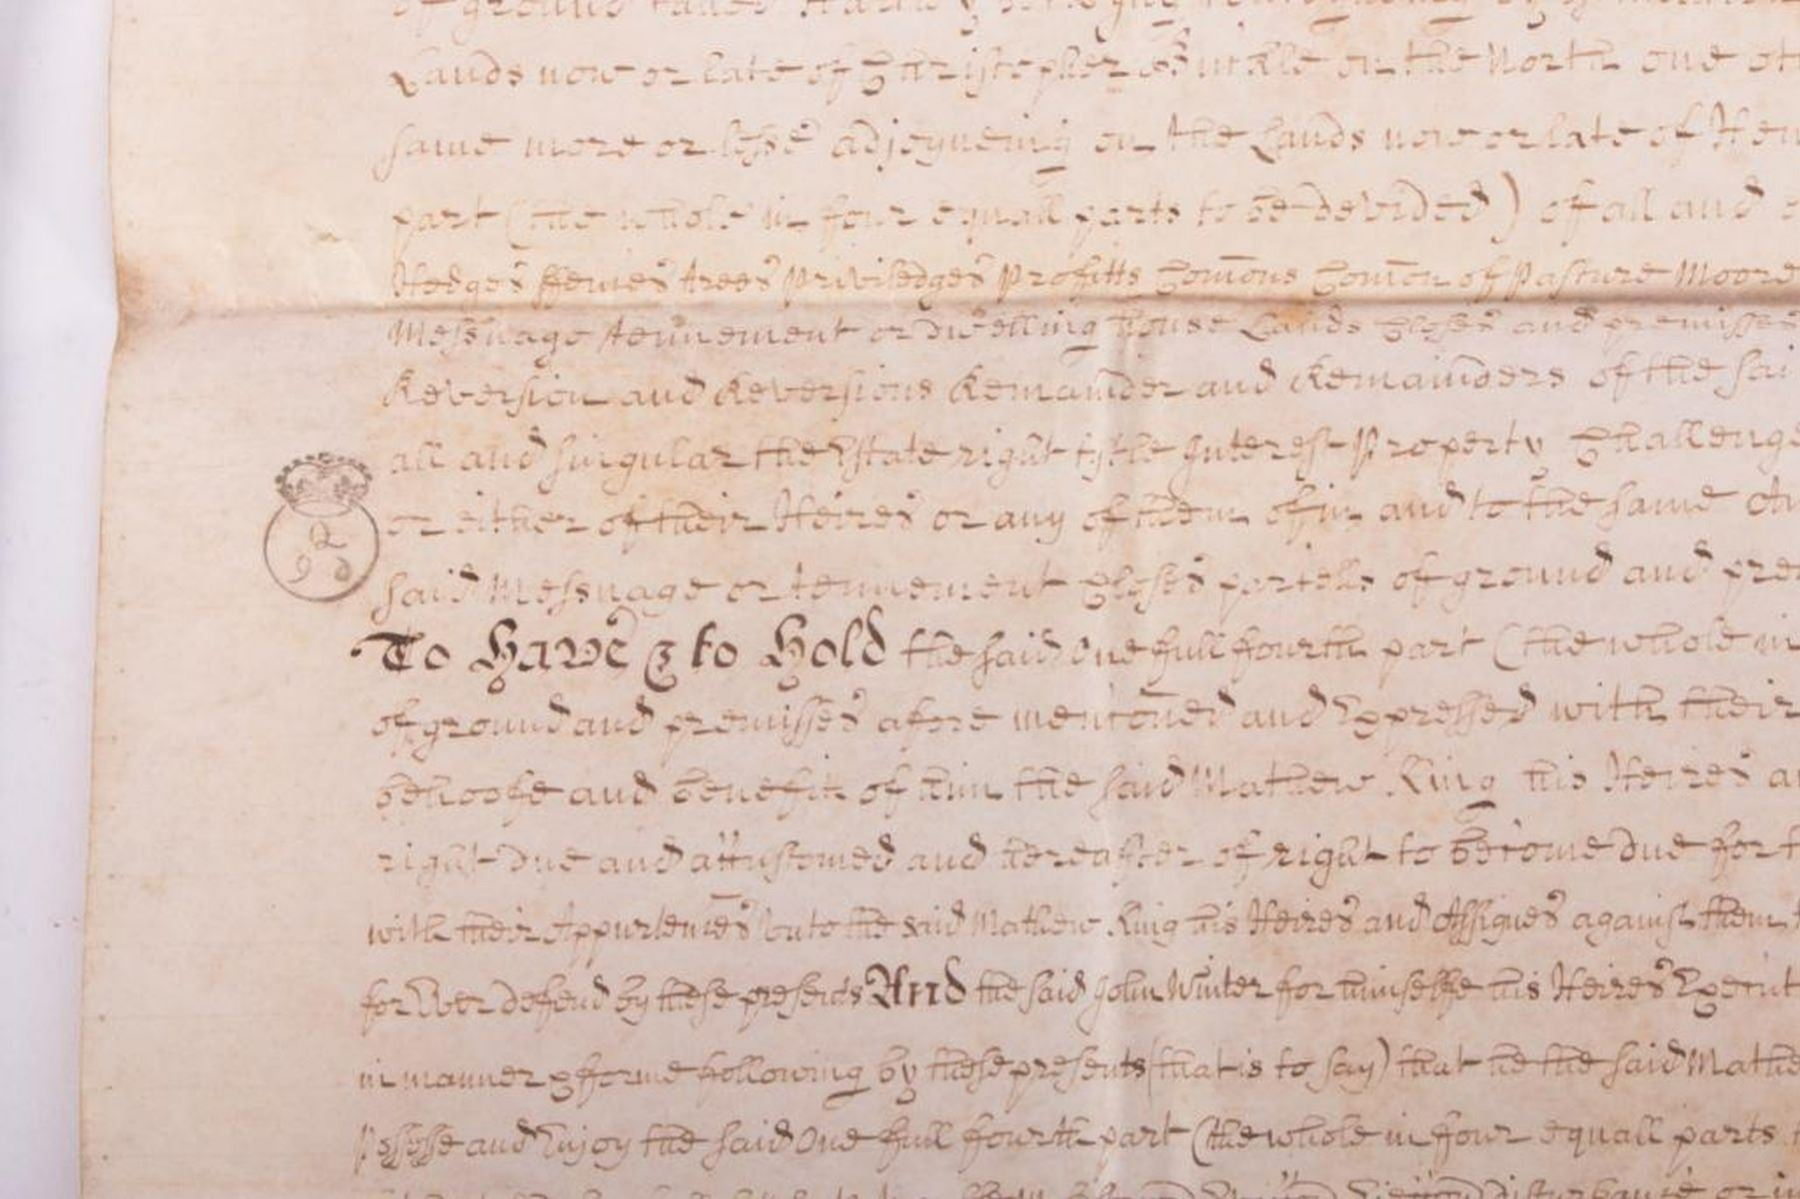 of ground called
Lands now or late of Christopher on the North one oth
same more or lesse adjoyneing on the Lands now or late of Hen
part (the whole in four equall parts to be devided) of all and
Hedges ffences trees Priviledges Profitts Comons Comon of Pasture Moore
Messuage tennement or dwelling house Lands Closes and premisses
Reversion and Reversions Remainder and Remainders of the sai
all and singular the Estate right tytle Interest Property Challenge
or either of their Heires or any of them of in and to the same An
said Messuage or tennement Closes parcells of ground and pre
Q
9 d
To Have & to Hold the said One full fourth part (the whole in
of ground and premisses afore mentoned and Expressed with their
behoofe and benefit of him the said Mathew King his Heires an
right due and accustomed and hereafter of right to become due for t
with their Appurtences unto the said Mathew King his Heires and Assignes against them
for Ever defend by these presents And the said John Winter for himselfe his Heires Execut
in manner & forme following by these presents (that is to say) that he the said Mathe
Possesse and Enjoy the said One full fourth part (the whole in four equall parts t